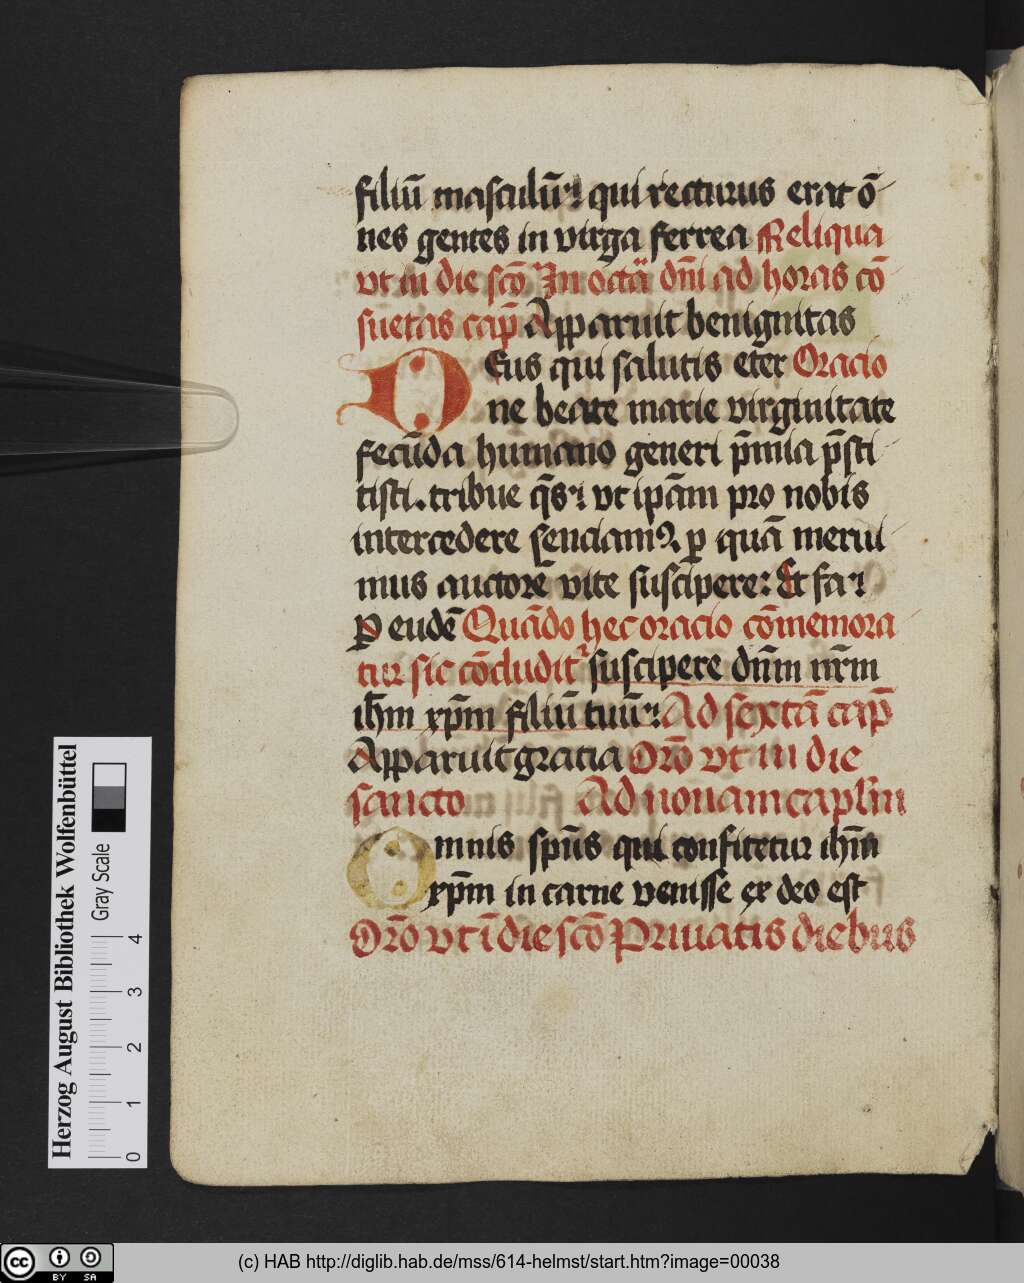 filiū masculū: qui recturus erat ō
nes gentes in virga ferrea Reliqua
vt in die scō In octa dn̄i ad horas cō
suetas cap̄ Apparuit benignitas
Deus qui salutis eter Oracio
ne beate marie virginitate
fecūda humano generi p̄mia p̄sti
tisti. tribue q̄s: vt ipām pro nobis
intercedere senciamꝰ. ꝑ quā merui
mus auctorē vite suscipere: Et fa:
P eudē Quādo hec oracio cōmemora
tur sic cōcludit᷑ suscipere dn̄m nr̄m
ih̄m xp̄m filiū tuū: Ad sextā cap̄
Apparuit gracia Orō vt in die
sancto Ad nonam caplm̄
Omnis sp̄us qui confitetur ih̄m
xp̄m in carne venisse ex deo est
Orō vt ī die scō Priuatis diebus
Herzog August Bibliothek Wolfenbüttel
Gray Scale
0 1 2 3 4
cc BY SA
(c) HAB http://diglib.hab.de/mss/614-helmst/start.htm?image=00038